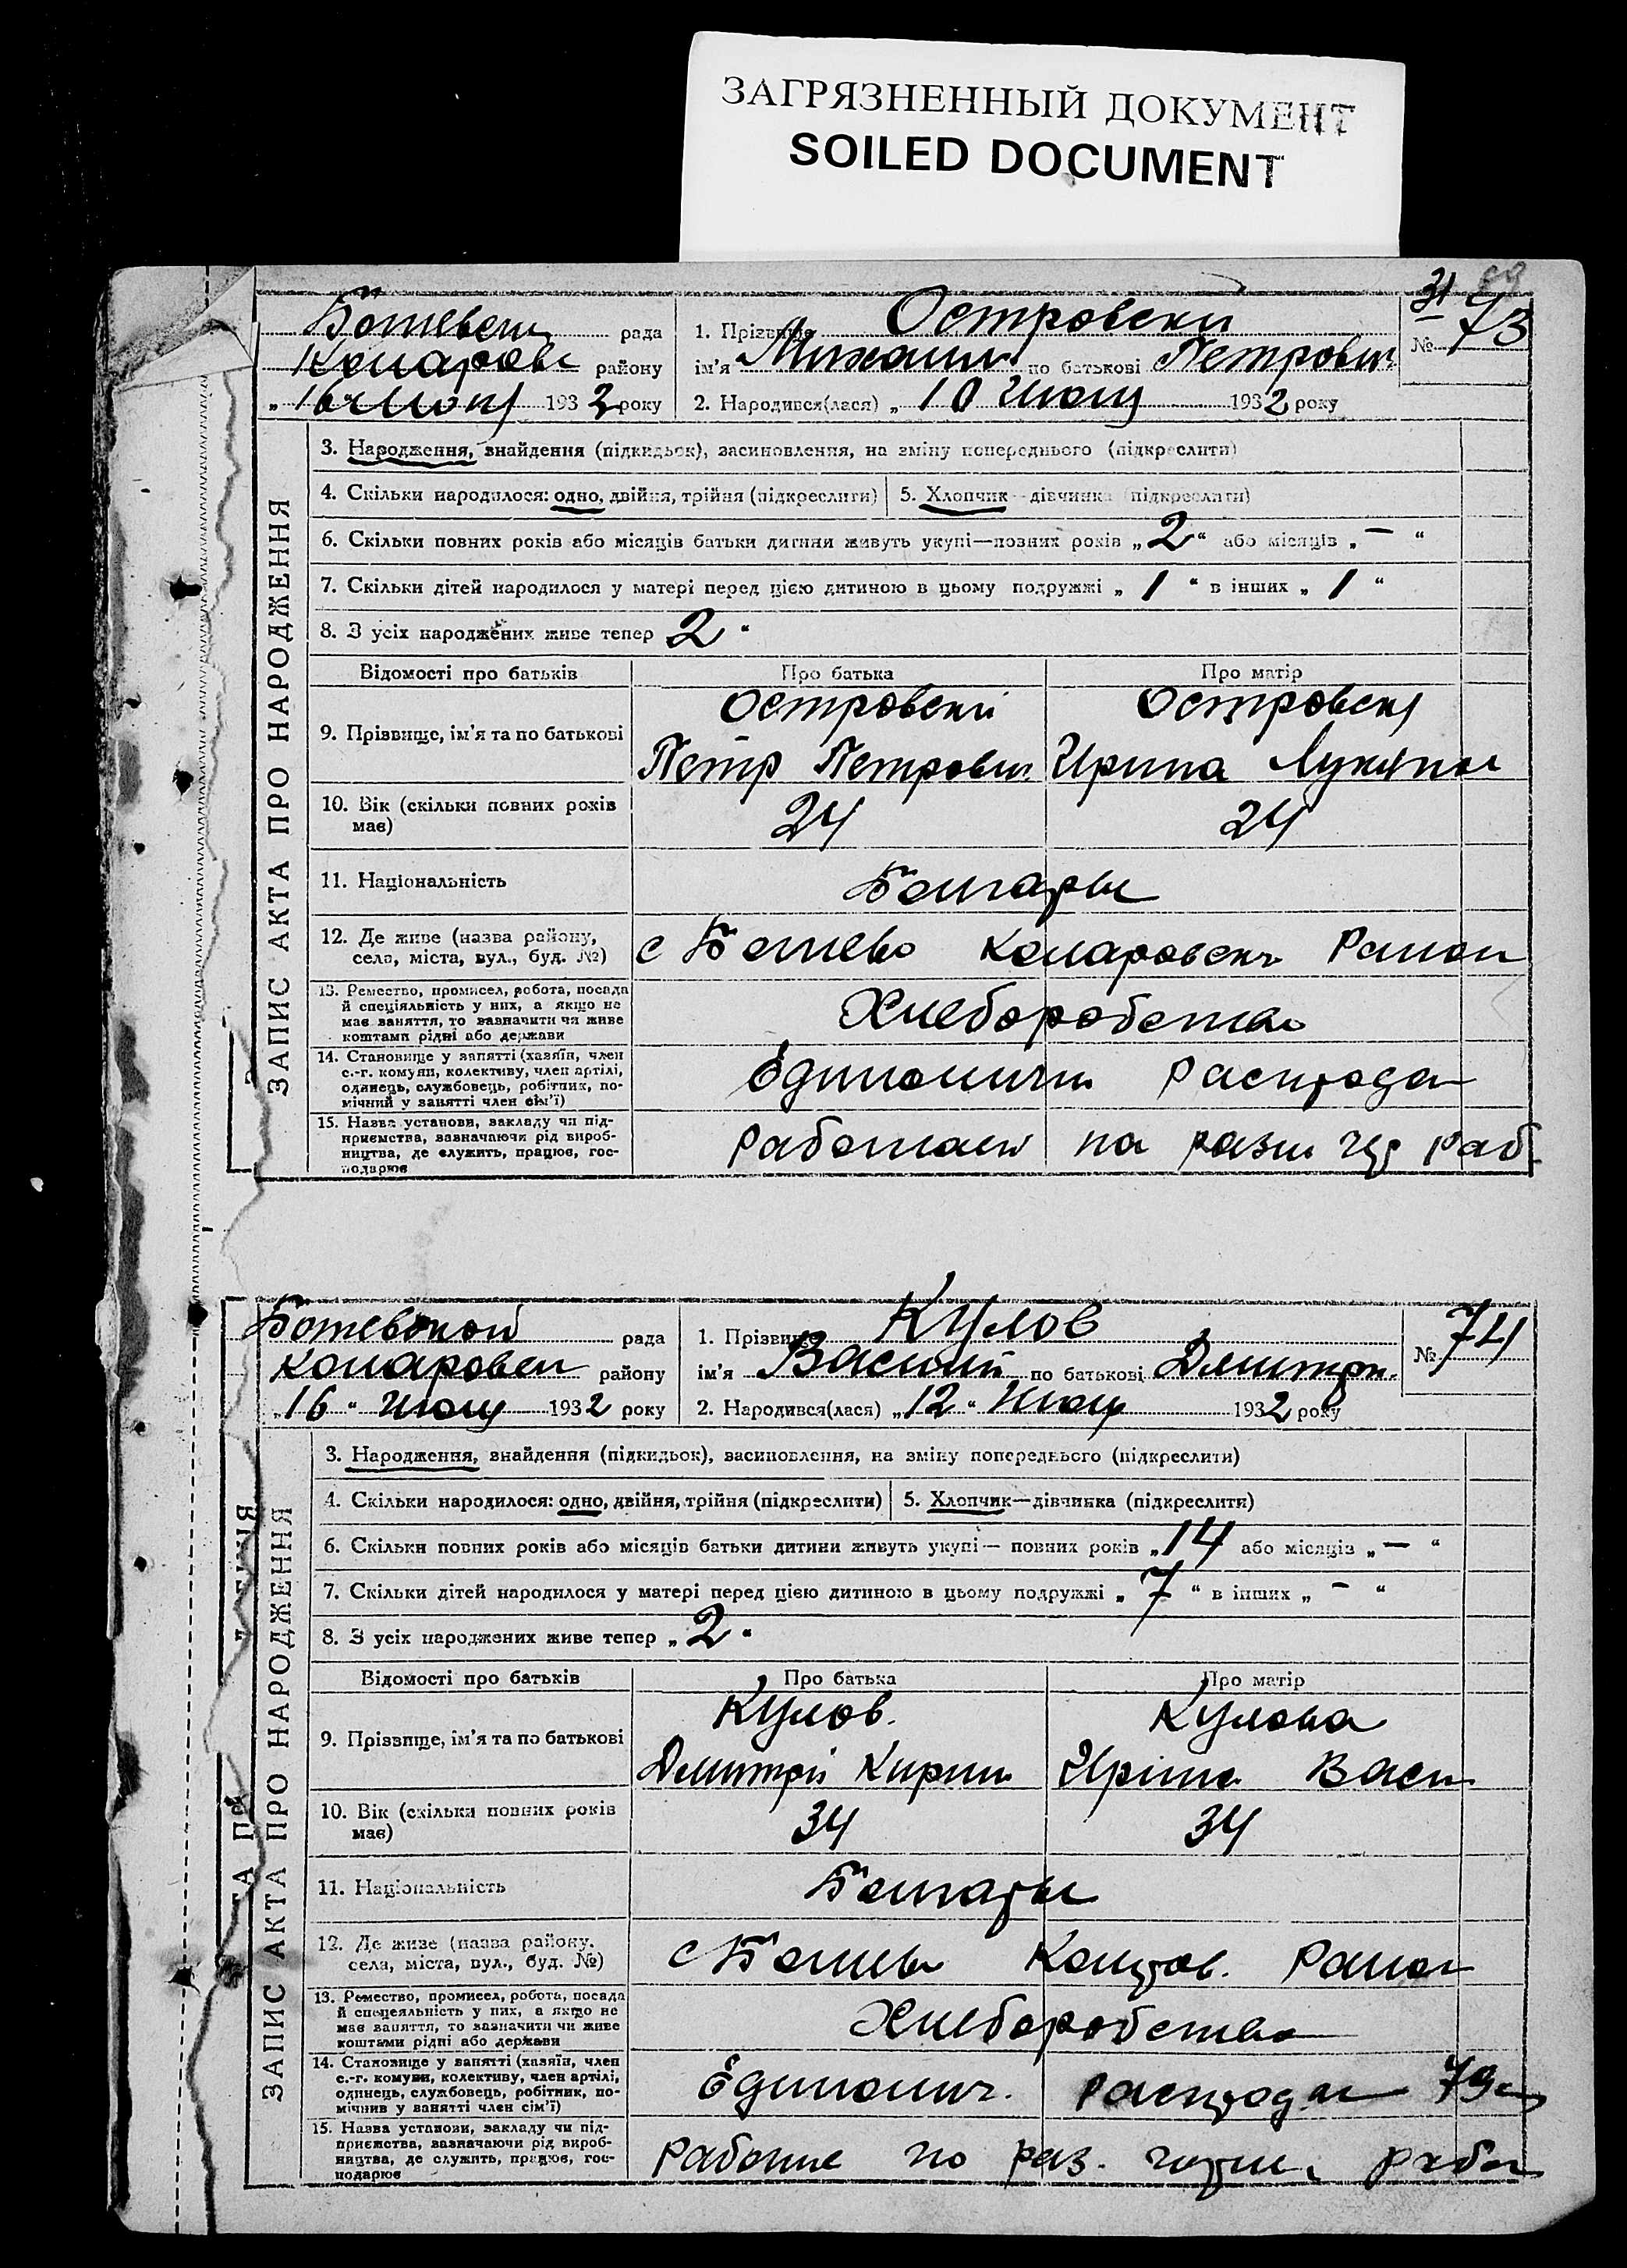 ЗАГРЯЗНЕННЫЙ ДОКУМЕНТ
SOILED DOCUMENT
31
Ботевськ рада 1. Прізвище Островски № 73
района ім'я Михаил по батькові Петрович
„16 193 року 2. Народився(лася) „10 Июля 1932 року
ЗАПИС АКТА ПРО НАРОДЖЕННЯ
3. Народження, знайдення (підкидьок), засиновлення, на зміну попереднього (підкреслити)
4. Скільки народилося: одно, двійня, трійня (підкреслити) 5. Хлопчик—дівчинка (підкреслити)
6. Скільки повних років або місяців батьки дитини живуть укупі—повних років „2“ або місяців „—“
7. Скільки дітей народилося у матері перед цією дитиною в цьому подружжі „1“ в інших „1“
8. З усіх народжених живе тепер 2“
Відомості про батьків Про батька Про матір
9. Прізвище, ім'я та по батькові
Островски Островск
Петр Петрович Ирина Лукинов
10. Вік (скільки повних років має)
24 24
11. Національність Болгары
12. Де живе (назва району, села, міста, вул., буд. №)
с Ботево Коларовск Район
13. Ремество, промисел, робота, посада й спеціяльність у них, а якщо не має заняття, то зазначити чи живе коштами рідні або держави
Хлеборобство
14. Становище у занятті (хазяїн, член с.-г. комуни, колективу, член артілі, одинець, службовець, робітник, помічний у занятті член сім'ї)
Единолични Распрода
15. Назва установи, закладу чи підприємства, зазначаючи рід виробництва, де служить, працює, господарює
работает на разн раб
Ботевской рада 1. Прізвище Кулов № 74
Коларовск району ім'я Василий по батькові Дмитри.
„16“ Июля 1932 року 2. Народився(лася) „12“ Июля 1932 року
ЗАПИС АКТА ПРО НАРОДЖЕННЯ
3. Народження, знайдення (підкидьок), засиновлення, на зміну попереднього (підкреслити)
4. Скільки народилося: одно, двійня, трійня (підкреслити) 5. Хлопчик—дівчинка (підкреслити)
6. Скільки повних років або місяців батьки дитини живуть укупі — повних років „14 або місяців „—“
7. Скільки дітей народилося у матері перед цією дитиною в цьому подружжі „7“ в інших „—“
8. З усіх народжених живе тепер „2“
Відомості про батьків Про батька Про матір
9. Прізвище, ім'я та по батькові
Кулов. Кулова
Дмитрій Кирил Ирина Васи
10. Вік (скільки повних років має)
34 34
11. Національність Болгары
12. Де живе (назва району, села, міста, вул., буд. №)
с Ботево Коларов. Район
13. Ремество, промисел, робота, посада й спецеяльність у них, а якщо не має заняття, то зазначити чи живе коштами рідні або держави
Хлеборобство
14. Становище у занятті (хазяїн, член с.-г. комуни, колективу, член артілі, одинець, службовець, робітник, помічнив у занятті член сім'ї)
Единолич. распрода
15. Назва установи, закладу чи підприємства, зазначаючи рід виробництва, де служить, працює, господарює
по раз. рабо